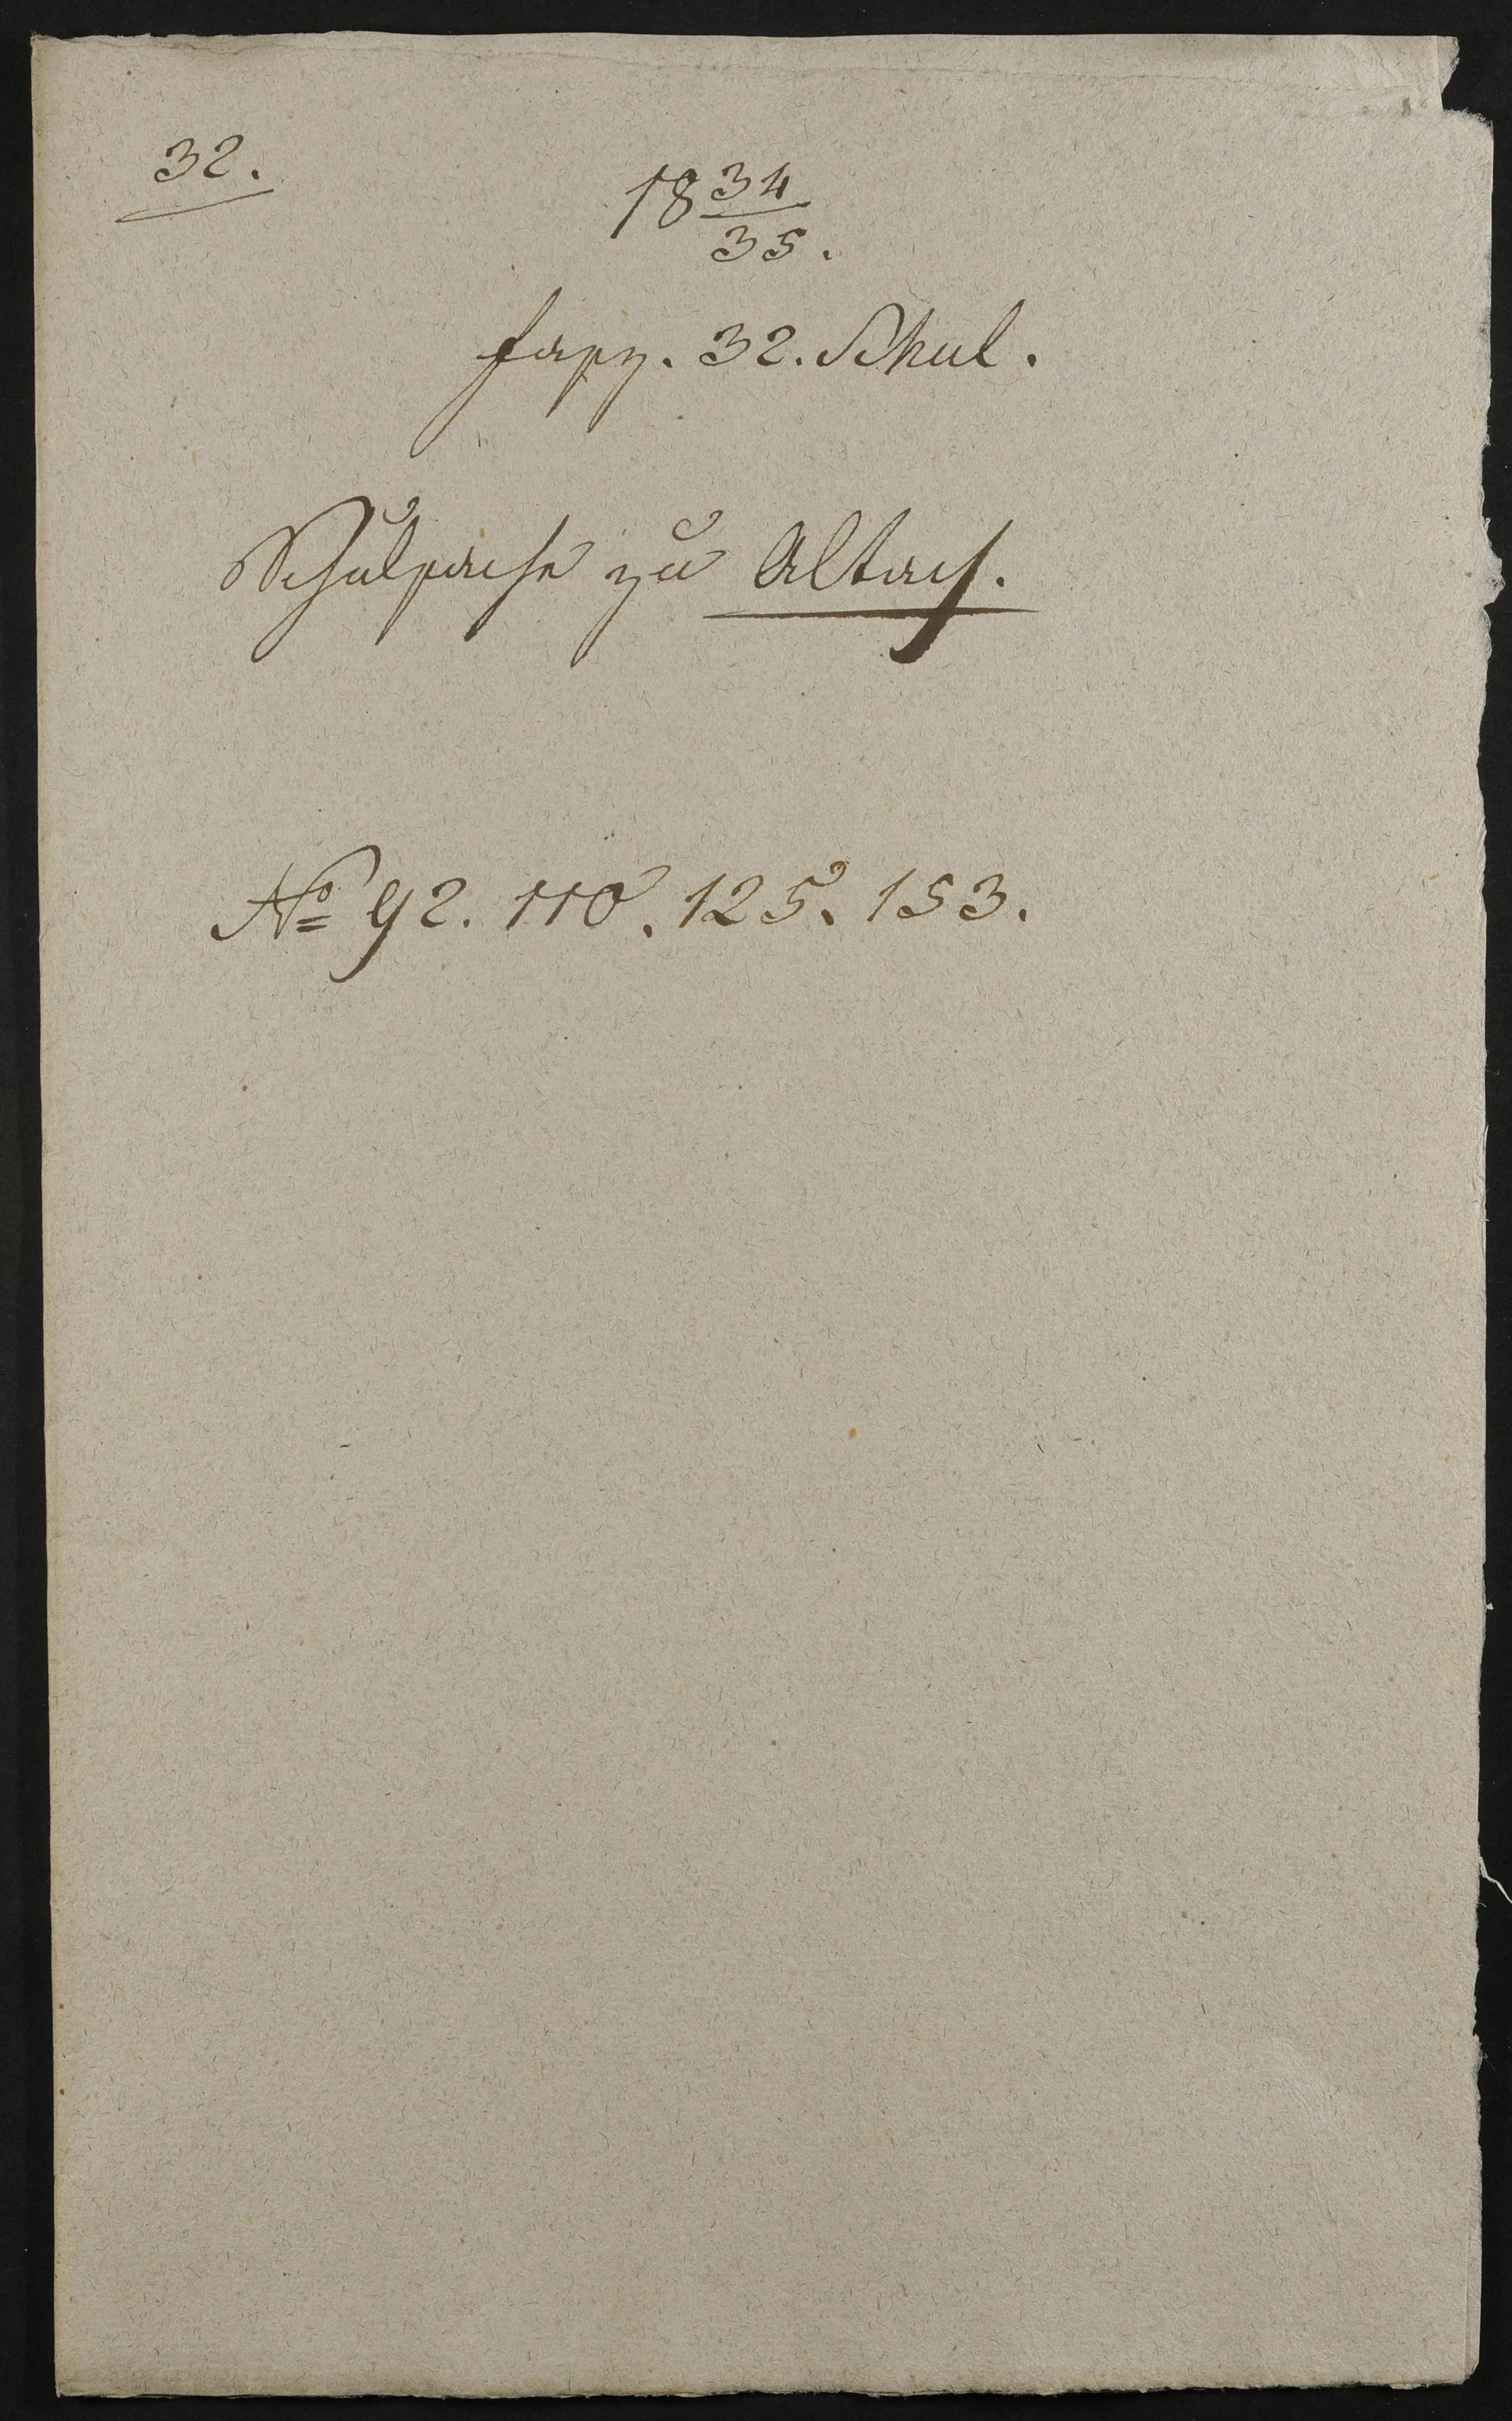 32.
18 34/35.
fasz. 32. Schul.
Schulsache zu Altach.
No 92. 110. 125. 153.